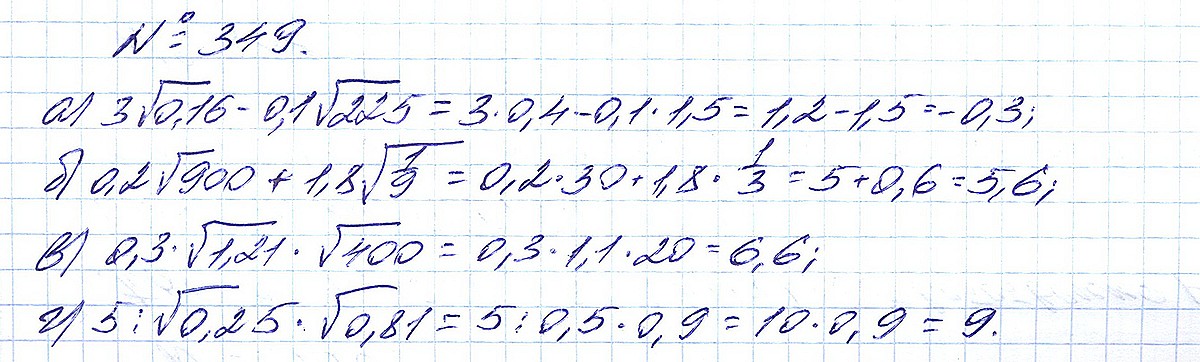 № 349.
а) 3√0,16 - 0,1√225 = 3·0,4 - 0,1·1,5 = 1,2 - 1,5 = -0,3;
б) 0,2√900 + 1,8√1/9 = 0,2·30 + 1,8·1/3 = 5 + 0,6 = 5,6;
в) 0,3·√1,21·√400 = 0,3·1,1·20 = 6,6;
г) 5:√0,25·√0,81 = 5:0,5·0,9 = 10·0,9 = 9.